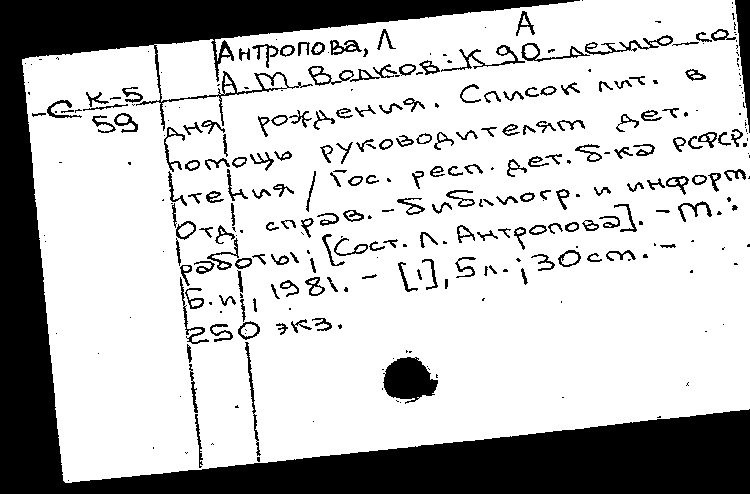 А
Антропова, Л
С К-5
59
А.М. Волков: К 90-летию со
дня рождения. Список лит. в
помощь руководителям дет.
чтения / Гос. респ. дет. б-ка РСФСР.
Отд. справ.-библиогр. и информ.
работы; [Сост. Л. Антропова]. - М.:
Б.и., 1981. - [1], 5л.; 30см. -
250 экз.